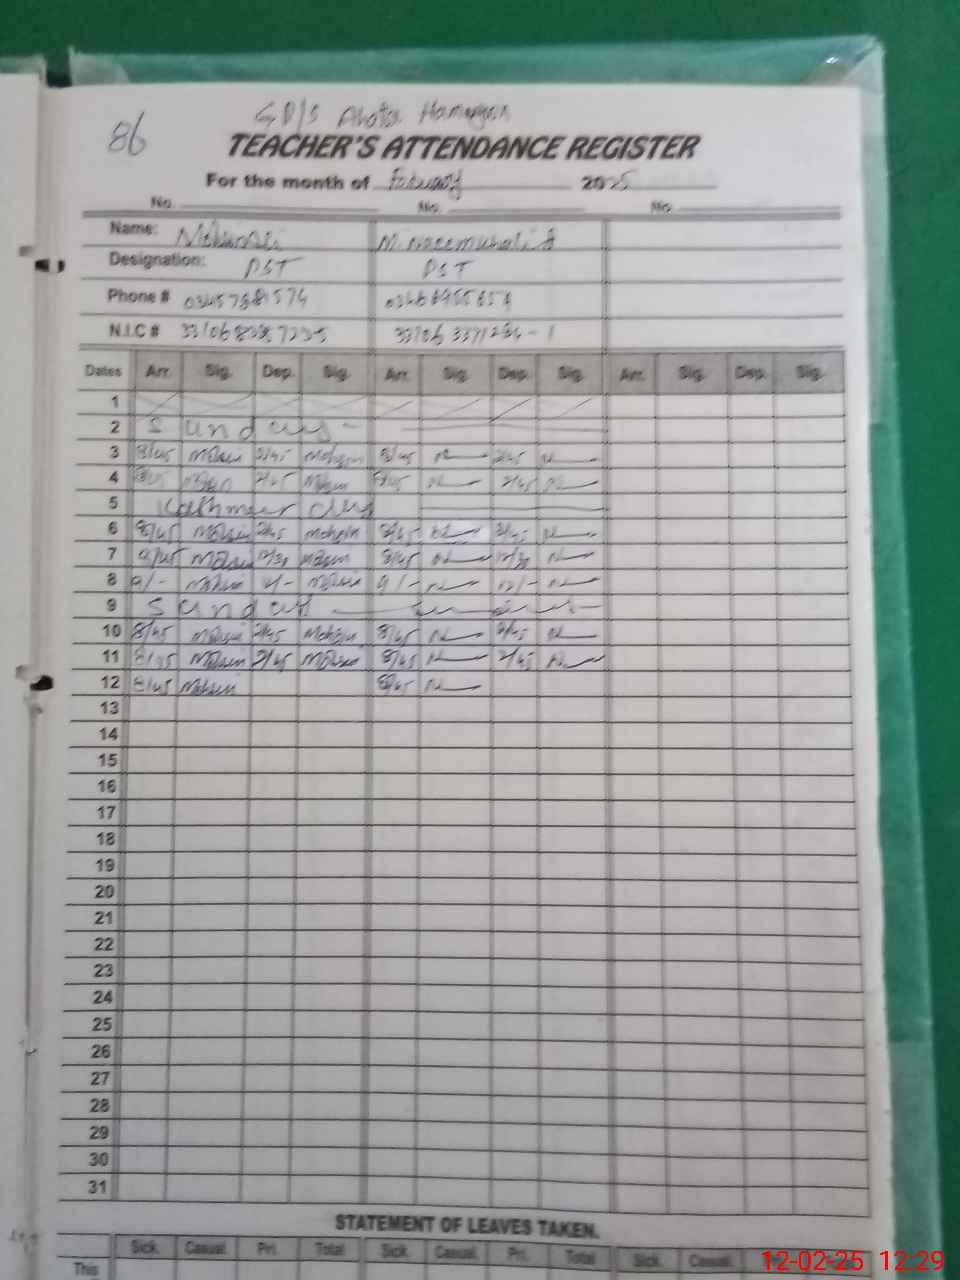 86
TEACHER'S ATTENDANCE REGISTER
For the month of February 2025
No. No. No.
Name: Mohsin Ali
Designation: PST PST
Phone #
N.I.C #
Dates Arr. Sig. Dep. Sig. Arr. Sig. Dep. Sig. Arr. Sig. Dep. Sig.
1
2 Sunday
3 8/45 Mohsin 2/45 Mohsin 8/45 2/45
4 8/45 Mohsin 2/45 Mohsin 8/45 2/45
5 Kashmeer day
6 8/45 Mohsin 2/45 Mohsin 8/45 2/45
7 8/45 Mohsin 12/30 Mohsin 8/45 12/30
8 9/- Mohsin 12/- Mohsin 9/- 12/-
9 Sunday
10 8/45 Mohsin 2/45 Mohsin 8/45 2/45
11 8/45 Mohsin 2/45 Mohsin 8/45 2/45
12 8/45 Mohsin 8/45
13
14
15
16
17
18
19
20
21
22
23
24
25
26
27
28
29
30
31
STATEMENT OF LEAVES TAKEN.
Sick. Casual. Pri. Total Sick. Casual. Pri. Total Sick. Casual.
This
12-02-25 12:29